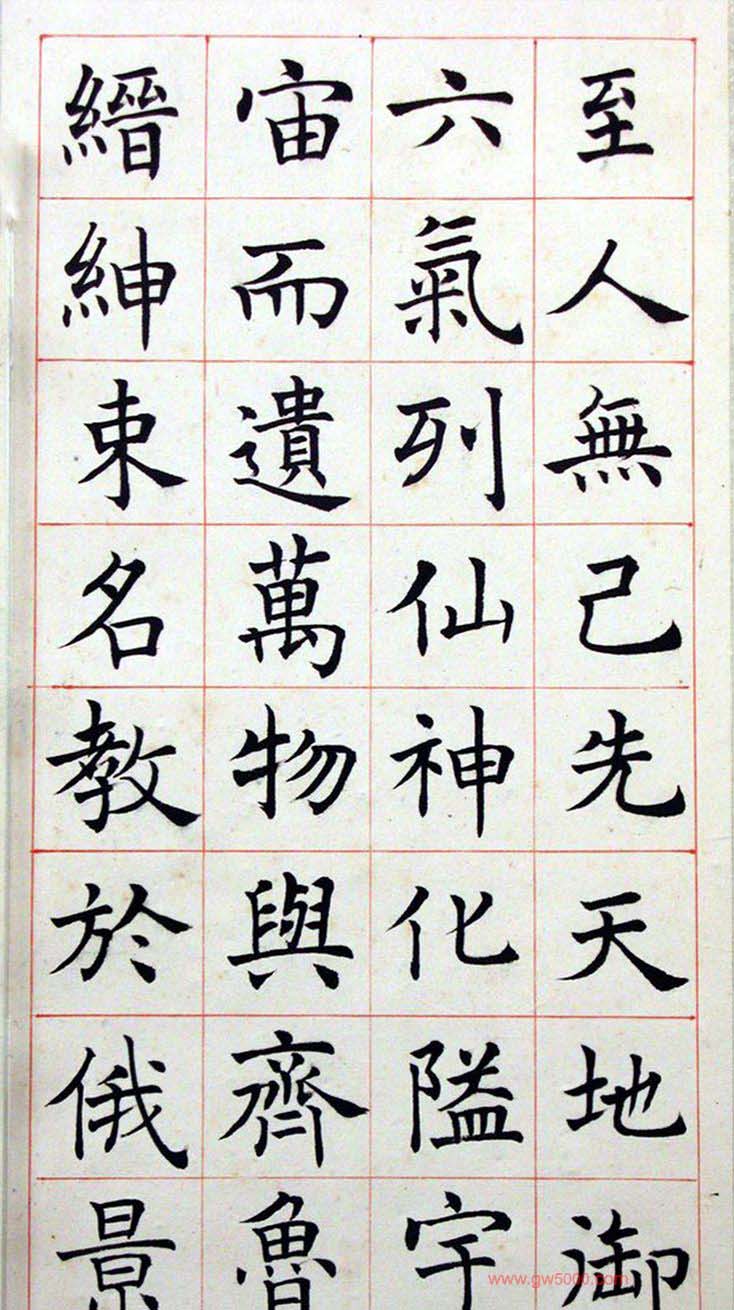 至人無己先天地御
六氣列仙神化隘宇
宙而遺萬物與齊魯
縉紳束名教於俄景
www.gw5000.com